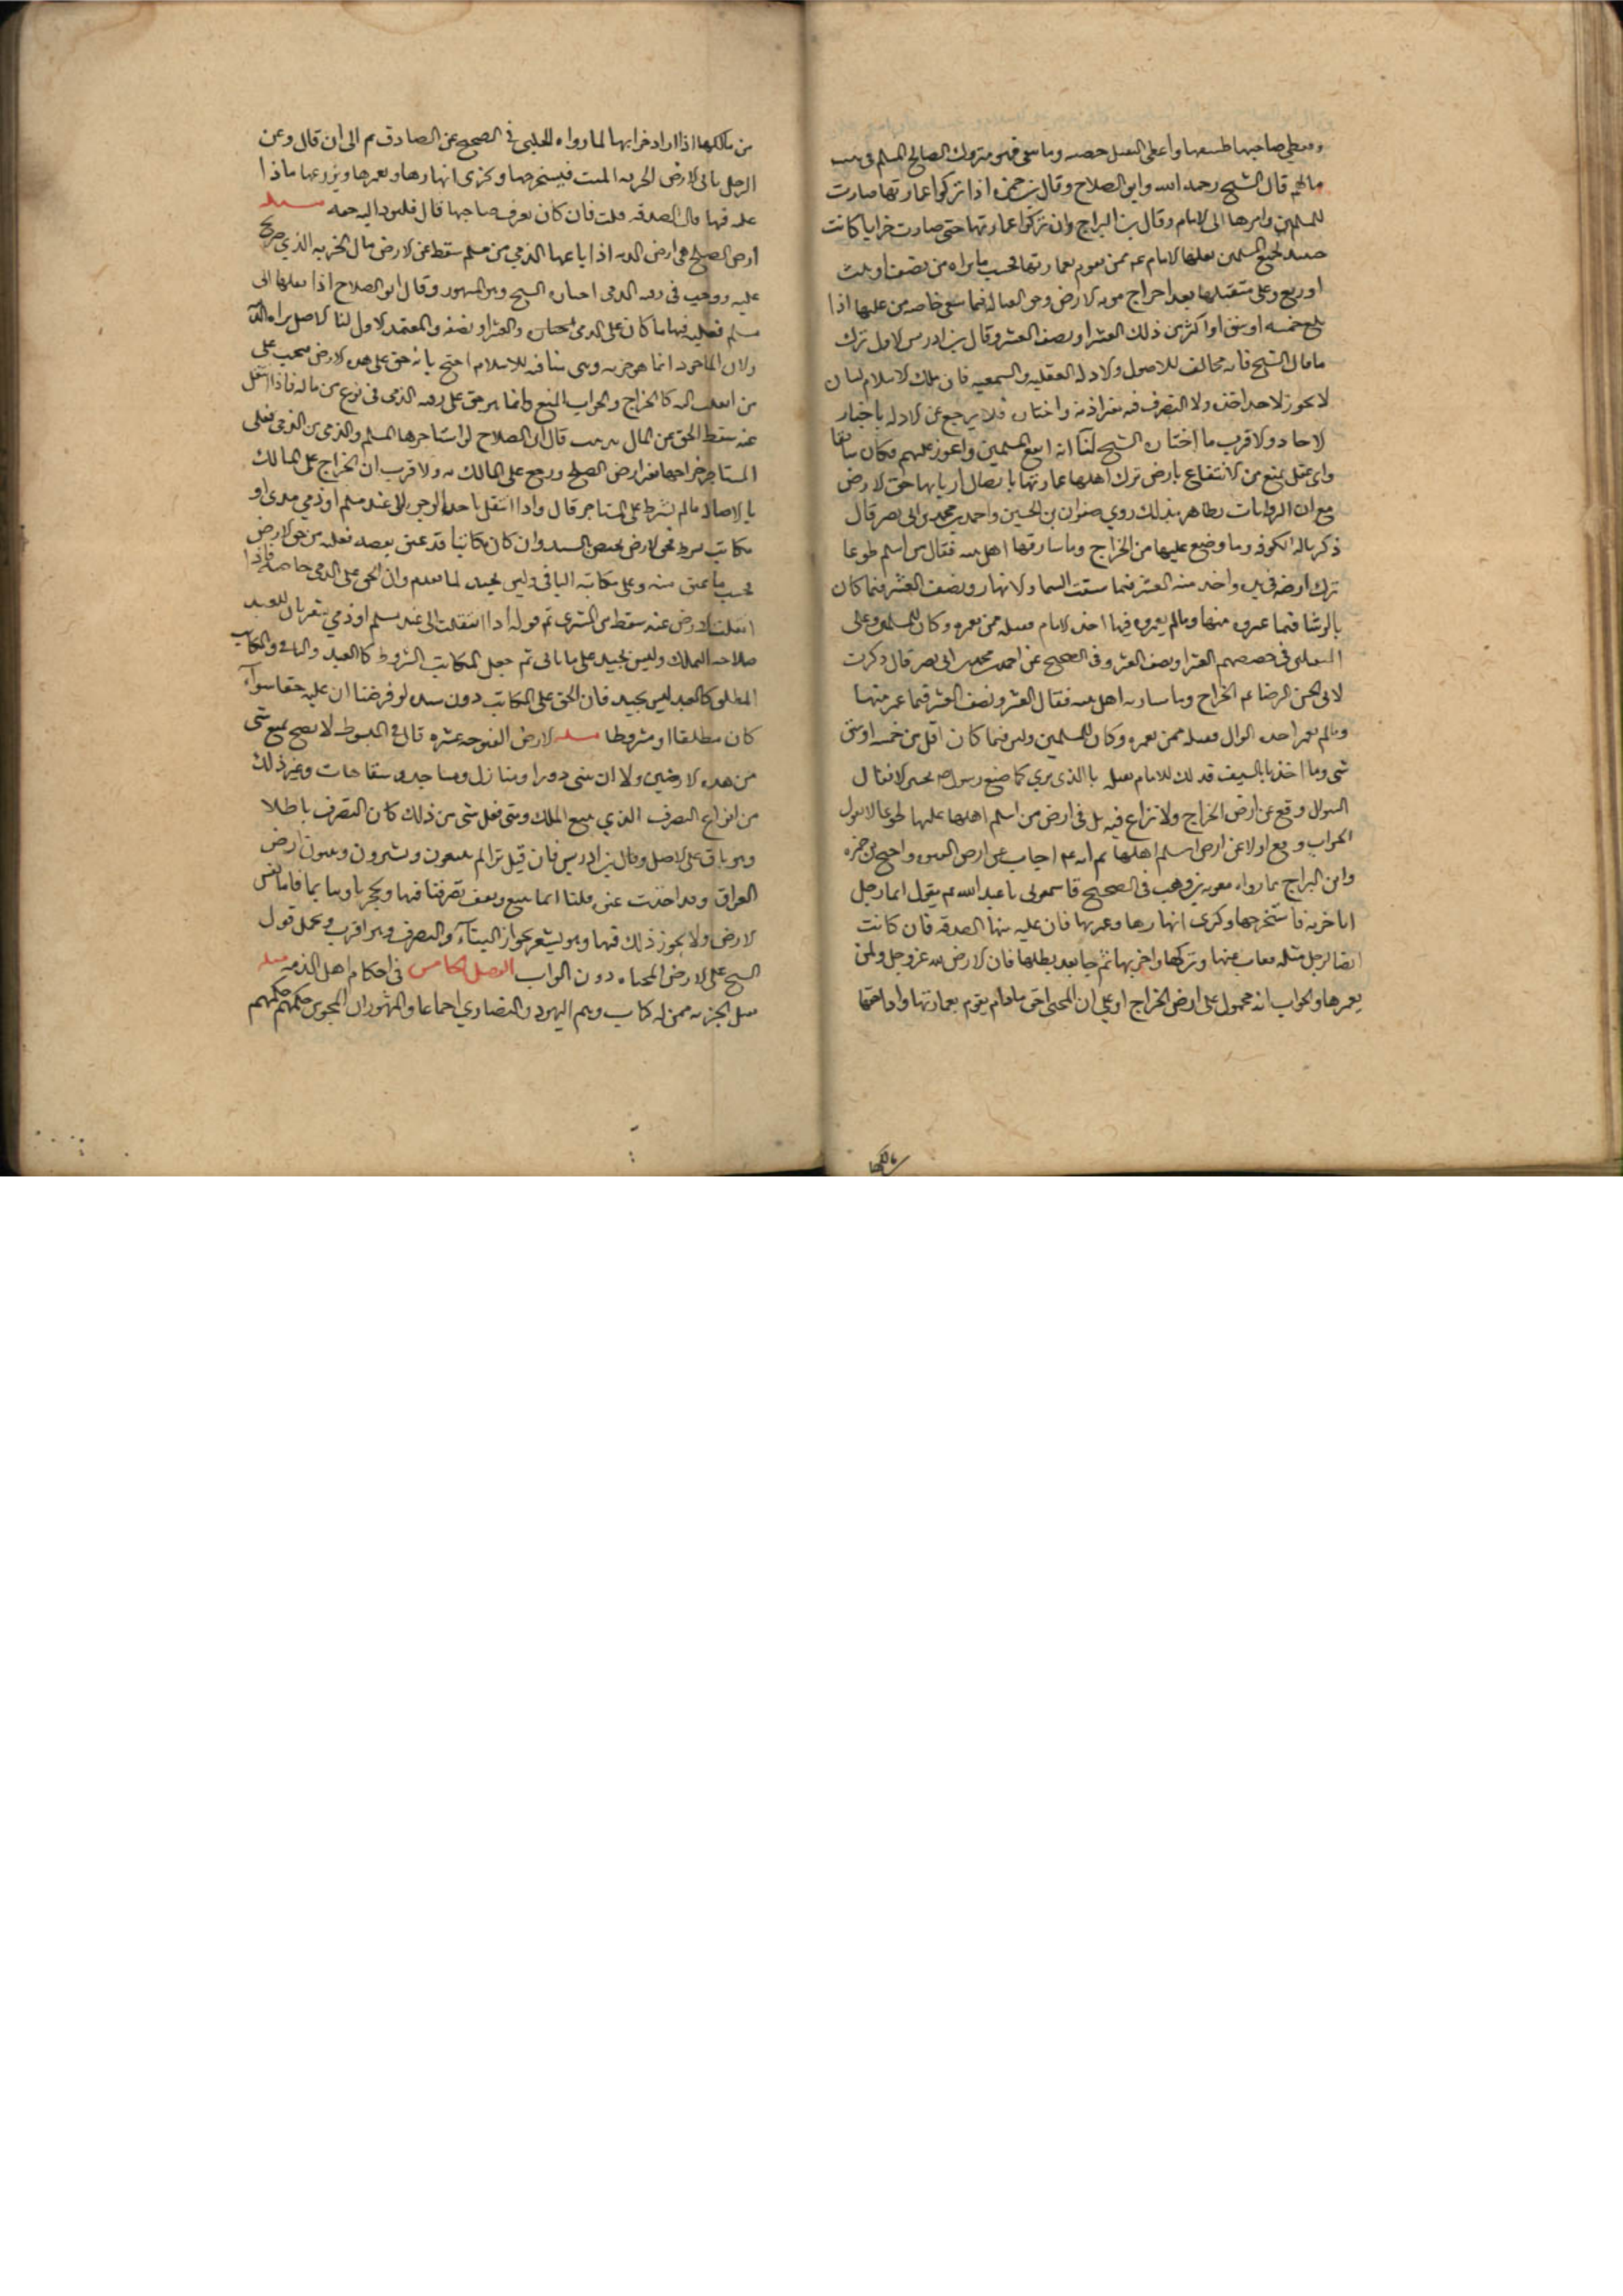 ويعطي صاحبها طسقها واعطى المتقبل حصته وما بقي فهو متروك لصالح المسلمين في بيت
مالهم قال الشيخ رحمه الله وابن الصلاح وقال بن حمزه اذا تركوا عمارتها صارت
للمسلمين وامرها الى الامام وقال بن البراج وان تركوا عمارتها حتى صارت خرابا كانت
حينئذ لجميع المسلمين يقبلها الامام عم ممن يقوم بعمارتها بحسب ما يراه من نصف او ثلث
او ربع وعلى متقبلها بعد اخراج مونه الارض وحق القباله فيما يبقى في خاصه من غلتها اذا
بلغ خمسه اوسق او اكثر من ذلك العشر او نصف العشر وقال بن ادريس الاول ترك
ما قال الشيخ فانه مخالف للاصول والادله العقليه والسمعيه فان ملك الانسان
لا يجوز لاحد اخذه ولا التصرف فيه بغير اذنه واختياره فلا يرجع عن الادله باخبار
الاحاد والاقرب ما اختاره الشيخ لنا انه انفع للمسلمين واعود عليهم فكان سايغا
واي عقل يمنع من الانتفاع بارض ترك اهلها عمارتها وايصال اربابها حق الارض
مع ان الروايات متظاهره بذلك روى صفوان بن واحمد بن محمد بن ابى نصر قال
ذكر ناله الكوفه وما وضع عليها من الخراج وما سار فيها اهل بيته فقال من اسلم طوعا
ترك ارضه في يده واخذ منه العشر فيما سقت السما والانهار ونصف العشر فيما كان
بالرشا فيما عمروه منها وما لم يعمروه فيها اخذه الامام فقبله ممن يعمره وكان للمسلمين وعلى
المتقبلين في حصصهم العشر او نصف العشر وفى الصحيح عن احمد بن محمد بن ابى نصر قال ذكرت
لابى الحسن الرضا عم الخراج وما سار به اهل بيته فقال العشر ونصف العشر فيما عمر منها
وما لم يعمر اخذه الوالي فقبله ممن يعمره وكان للمسلمين وليس فيما كان اقل من خمسه اوسق
شى وما اخذ بالسيف فذلك للامام يقبله بالذى يرى كما صنع رسول الله بخيبر لا يقال
السوال وقع عن ارض الخراج ولا نزاع فيه بل في ارض من اسلم اهلها عليها طوعا لانا نقول
الجواب وقع اولا عن ارض من اسلم اهلها ثم انه عم اجاب عن ارض العنوه واحتج بن حمزه
وابن البراج بما رواه معويه بن وهب فى الصحيح قال سمعت ابا عبد الله عم يقول ايما رجل
اتا خربه فاستخرجها وكرى انهارها وعمرها فان عليه فيها الصدقه فان كانت
ارضا لرجل قبله فغاب عنها وتركها واخربها ثم جا بعد يطلبها فان الارض لله عز وجل ولمن
يعمرها والجواب انه محمول على ارض الخراج او على ان المحيى احق ما دام يقوم بعمارتها واداحقها
مالكها
من مالكها اذا اراد خرابها لما رواه الحلبي في الصحيح عن الصادق عم الى ان قال وعن
الرجل ياتى الارض الخربه الميته فيستخرجها ويكرى انهارها ويعمرها ويزرعها ماذا
عليه فيها قال الصدقه قلت فان كان يعرف صاحبها قال فليود اليه حقه مسله
ارض الصلح هى ارض الذمه اذا باعها الذمي من مسلم سقط عن الارض مال الجزيه الذي صولح
عليه ووجب في رقبه الذمى اختاره الشيخ وهو المشهور وقال ابو الصلاح اذا نقلها الى
مسلم فعليه فيها ما كان على الذمى والعشر او نصفه والمعتمد الاول لنا الاصل براه الذمه
ولان الماخوذ انما هو جزيه وهى منافيه للاسلام احتج بانه حق على هذه الارض فيجب على
من انتقلت اليه كالخراج والجواب المنع وانما هو حق على رقبه الذمى فى نوع من ماله فاذا انتقل
عنه سقط الحق عن المال تذنيب قال ابو الصلاح لو استاجرها المسلم والذمى من الذمى فعلى
المستاجر خراجها يعني ارض الصلح ويرجع على المالك به والاقرب ان الخراج على المالك
بالاصاله ما لم يشترط على المستاجر قال واذا انتقل باحد الوجهين الى عند مسلم او ذمي او
مكاتب مشروط فحق الارض يختص السيد وان كان مكاتبا قد عتق بعضه فعليه من حق الارض
بحسب ما عتق منه وعلى مكاتبه الباقى وليس بجيد لما تقدم وان الحق على الذمى خاصه فاذا
انتقلت الارض عنه سقط من المشترى ثم قوله اذا انتقلت الى عبد مسلم او ذمي يشعر بان للعبد
صلاحيه التملك وليس بجيد على ما ياتى ثم جعل المكاتب المشروط كالعبد والباقى والمكاتب
المطلق كالعبد ليس بجيد فان الحق على المكاتب دون سيده لو فرضنا ان عليه حقا سوآء
كان مطلقا او مشروطا مسله الارض المفتوحه عنوه قال فى المبسوط لا يصح بيع شى
من هذه الارضين ولا ان يبنى دورا ومنازل ومساجد وسقايات وغير ذلك
من انواع التصرف الذي يتبع الملك ومتى فعل شى من ذلك كان التصرف باطلا
وهو باق على الاصل وقال بن ادريس فان قيل نراكم تبيعون وتشترون وتقفون ارض
العراق وقد اخذت عنوه قلنا انما نبيع ونقف تصرفنا فيها وتحجيرنا وبناينا فاما نفس
الارض ولا يجوز ذلك فيها وهو يشعر بجواز البنآء والتصرف وهو اقرب ويحمل قول
الشيخ على الارض المحياه دون الموات الفصل الخامس فى احكام اهل الذمه مسله
تقبل الجزيه ممن له كتاب وهم اليهود والنصارى اجماعا والمشهور ان المجوس حكمهم حكمهم